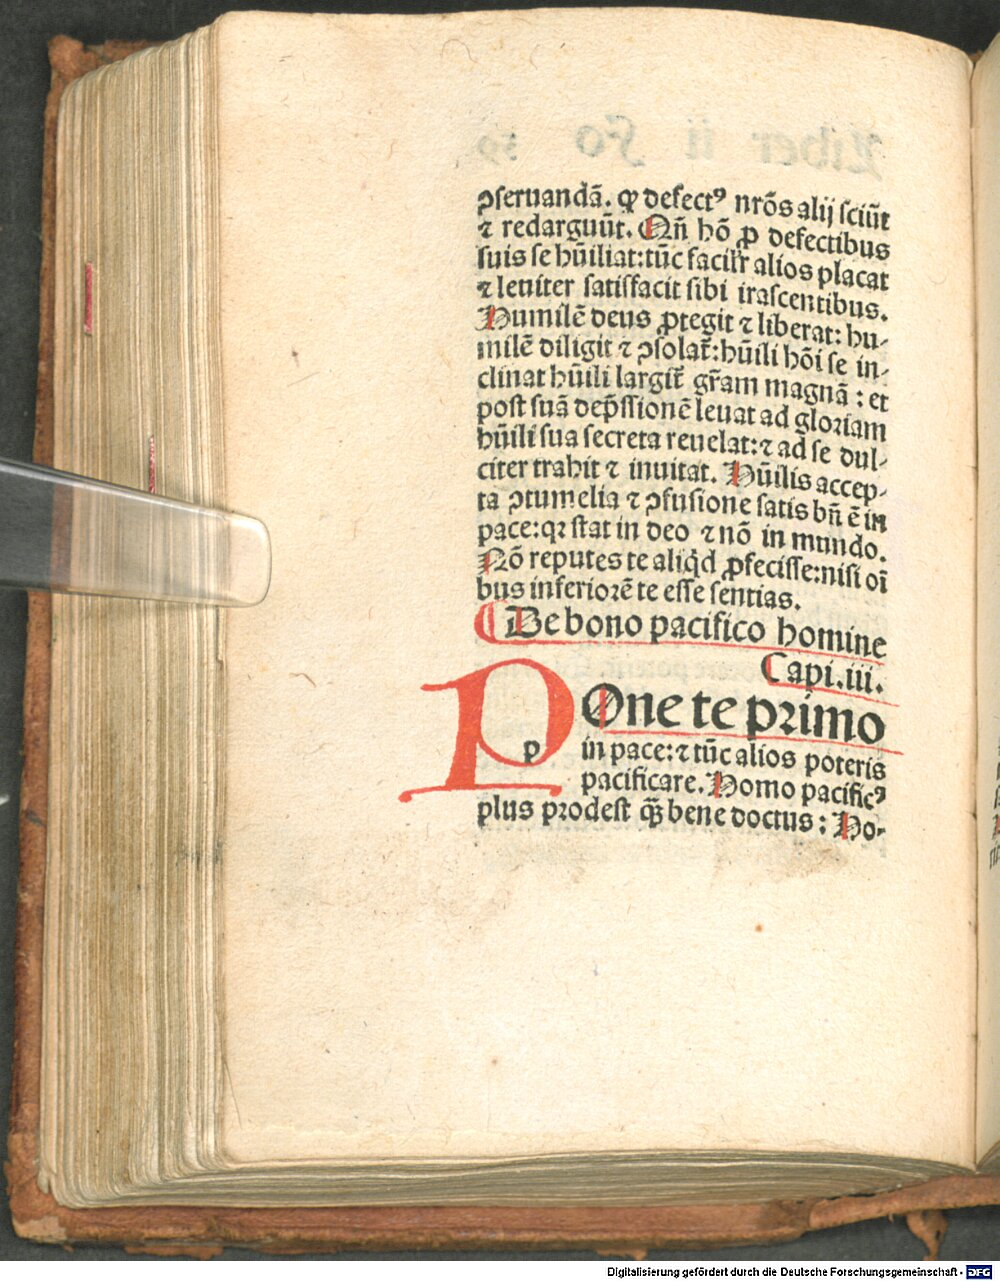 ꝯſeruandā. ꝙ defectꝰ nr̄os alij ſciūt
⁊ redarguūt. Qn̄ hō ꝓ defectibus
ſuis ſe hūiliat:tūc facilr̄ alios placat
⁊ leuiter ſatiſfacit ſibi iraſcentibus.
Humilē deus ꝓtegit ⁊ liberat: hu⸗
milē diligit ⁊ ꝯſolat̄: hūili hōi ſe in⸗
clinat hūili largit̄ gr̄am magnā : et
poſt ſuā dep̄ſſionē leuat ad gloꝛiam
hūili ſua ſecreta reuelat:⁊ ad ſe dul⸗
citer trahit ⁊ inuitat. Hūilis accep⸗
ta ꝯtumelia ⁊ ꝯfuſione ſatis bn̄ ē in
pace:qꝛ ſtat in deo ⁊ nō in mundo.
Nō reputes te aliq̇d ꝓfeciſſe:niſi oī
bus inferioꝛē te eſſe ſentias.
De bono pacifico homine
Capi.iii.
POne te pꝛimo
in pace:⁊ tūc alios poteris
pacificare. Homo pacificꝰ
plus pꝛodeſt qȝ̄ bene doctus: Ho⸗
Digitalisierung gefördert durch die Deutsche Forschungsgemeinschaft - DFG